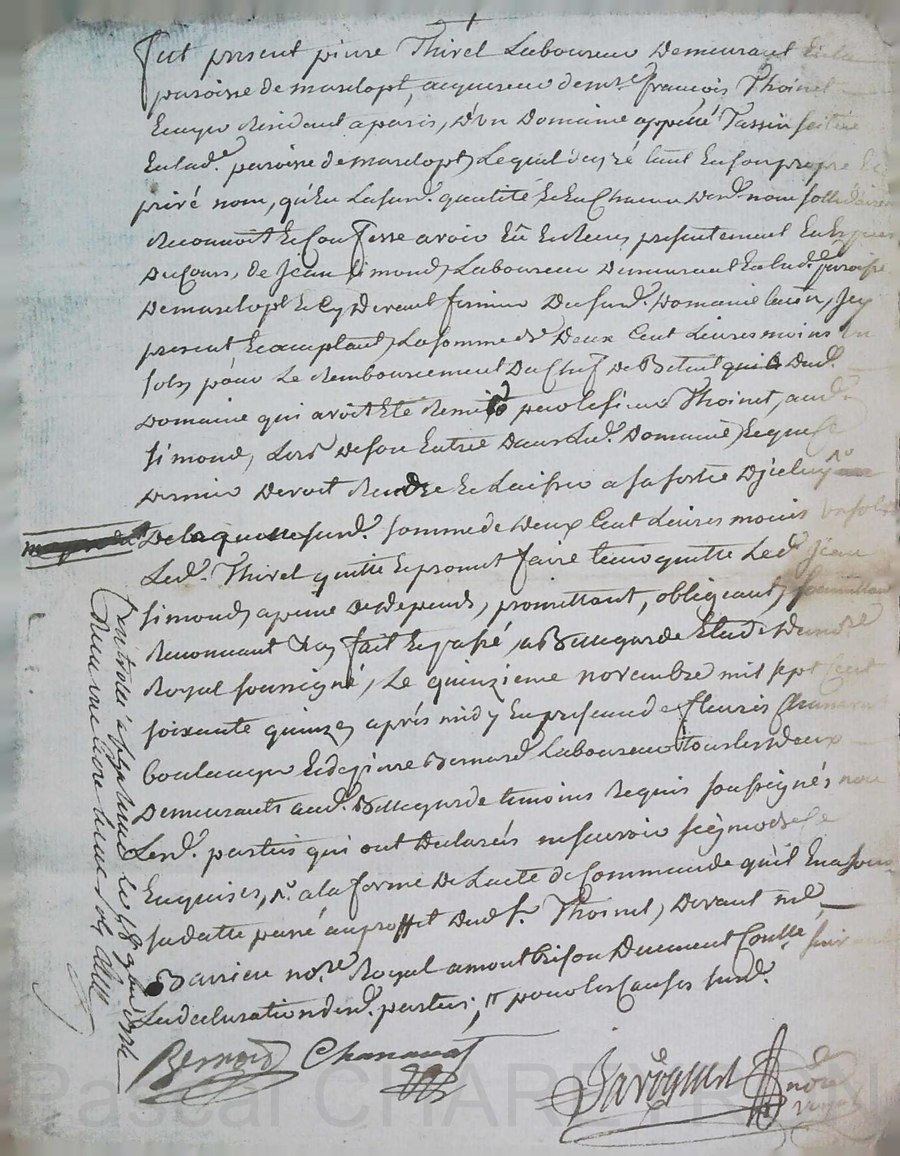 fut present pierre Thivel Laboureur Demeurant En la
paroisse de marclopt, acquereur de mre françois Thoinet
Ecuyer Résidant a paris, d'un Domaine appellé Tassin scitué
En lad.e paroisse de marclopt, Lequel de gré tant En son propre Et
privé nom, qu'En La sus.d. qualité Et En Chacun desd. noms sollidairement
Reconnoit Et Confesse avoir Eû Et Receu, présentement En Espèces
Du Cours, de Jean Simond, Laboureur Demeurant En lad. paroisse
De marclopt Et Cy Devant fermier Du sus.d. Domaine tassin, Icy
present Et acceptant, La somme de Deux Cent Livres moins un
sols, pour Le Remboursement Du Chef de Betail qui Dud.
Domaine qui avoit Eté Remis par le sieur Thoinet, aud.
simond, Lors de son Entrée Dans Led. Domaine, Et que Ce
Dernier Devoit Rendre Et Laisser a sa sortie D'jceluy
De laquelle susd. somme de Deux Cent Livres moins un sols
Led. Thivel quitte Et promet faire tenir quitte Led. Jean
simond, a peine de dépends, promettant, obligeant, soumettant
Renonceant &a fait Et passé, a Bellegarde Etude Du no.re
Royal soussigné, Le quinzieme novembre mil sept Cent
soixante quinze, après midy En presence de fleuris Chanavat
boulanger Et de pierre Bernard Laboureur tous les deux
Demeurants aud. Bellegarde temoins Requis soussignés non
Lesd. parties qui ont Declarés ne sçavoir signer de Ce
Enquises, a la forme De L'acte de Commande qu'il En a sous
sa datte passé au proffit Dud. S. Thoinet, Devant me
Barrieu no.re Royal a montbrison Duement Contllé, suivant
La declaration desd. parties; pour les Causes susd.
Bernard Chanavat
Javogues
no.re
royal
Controlé a Bellegarde le 18 9bre 1775
Reçu une livre
Pascal CHARDEYRON